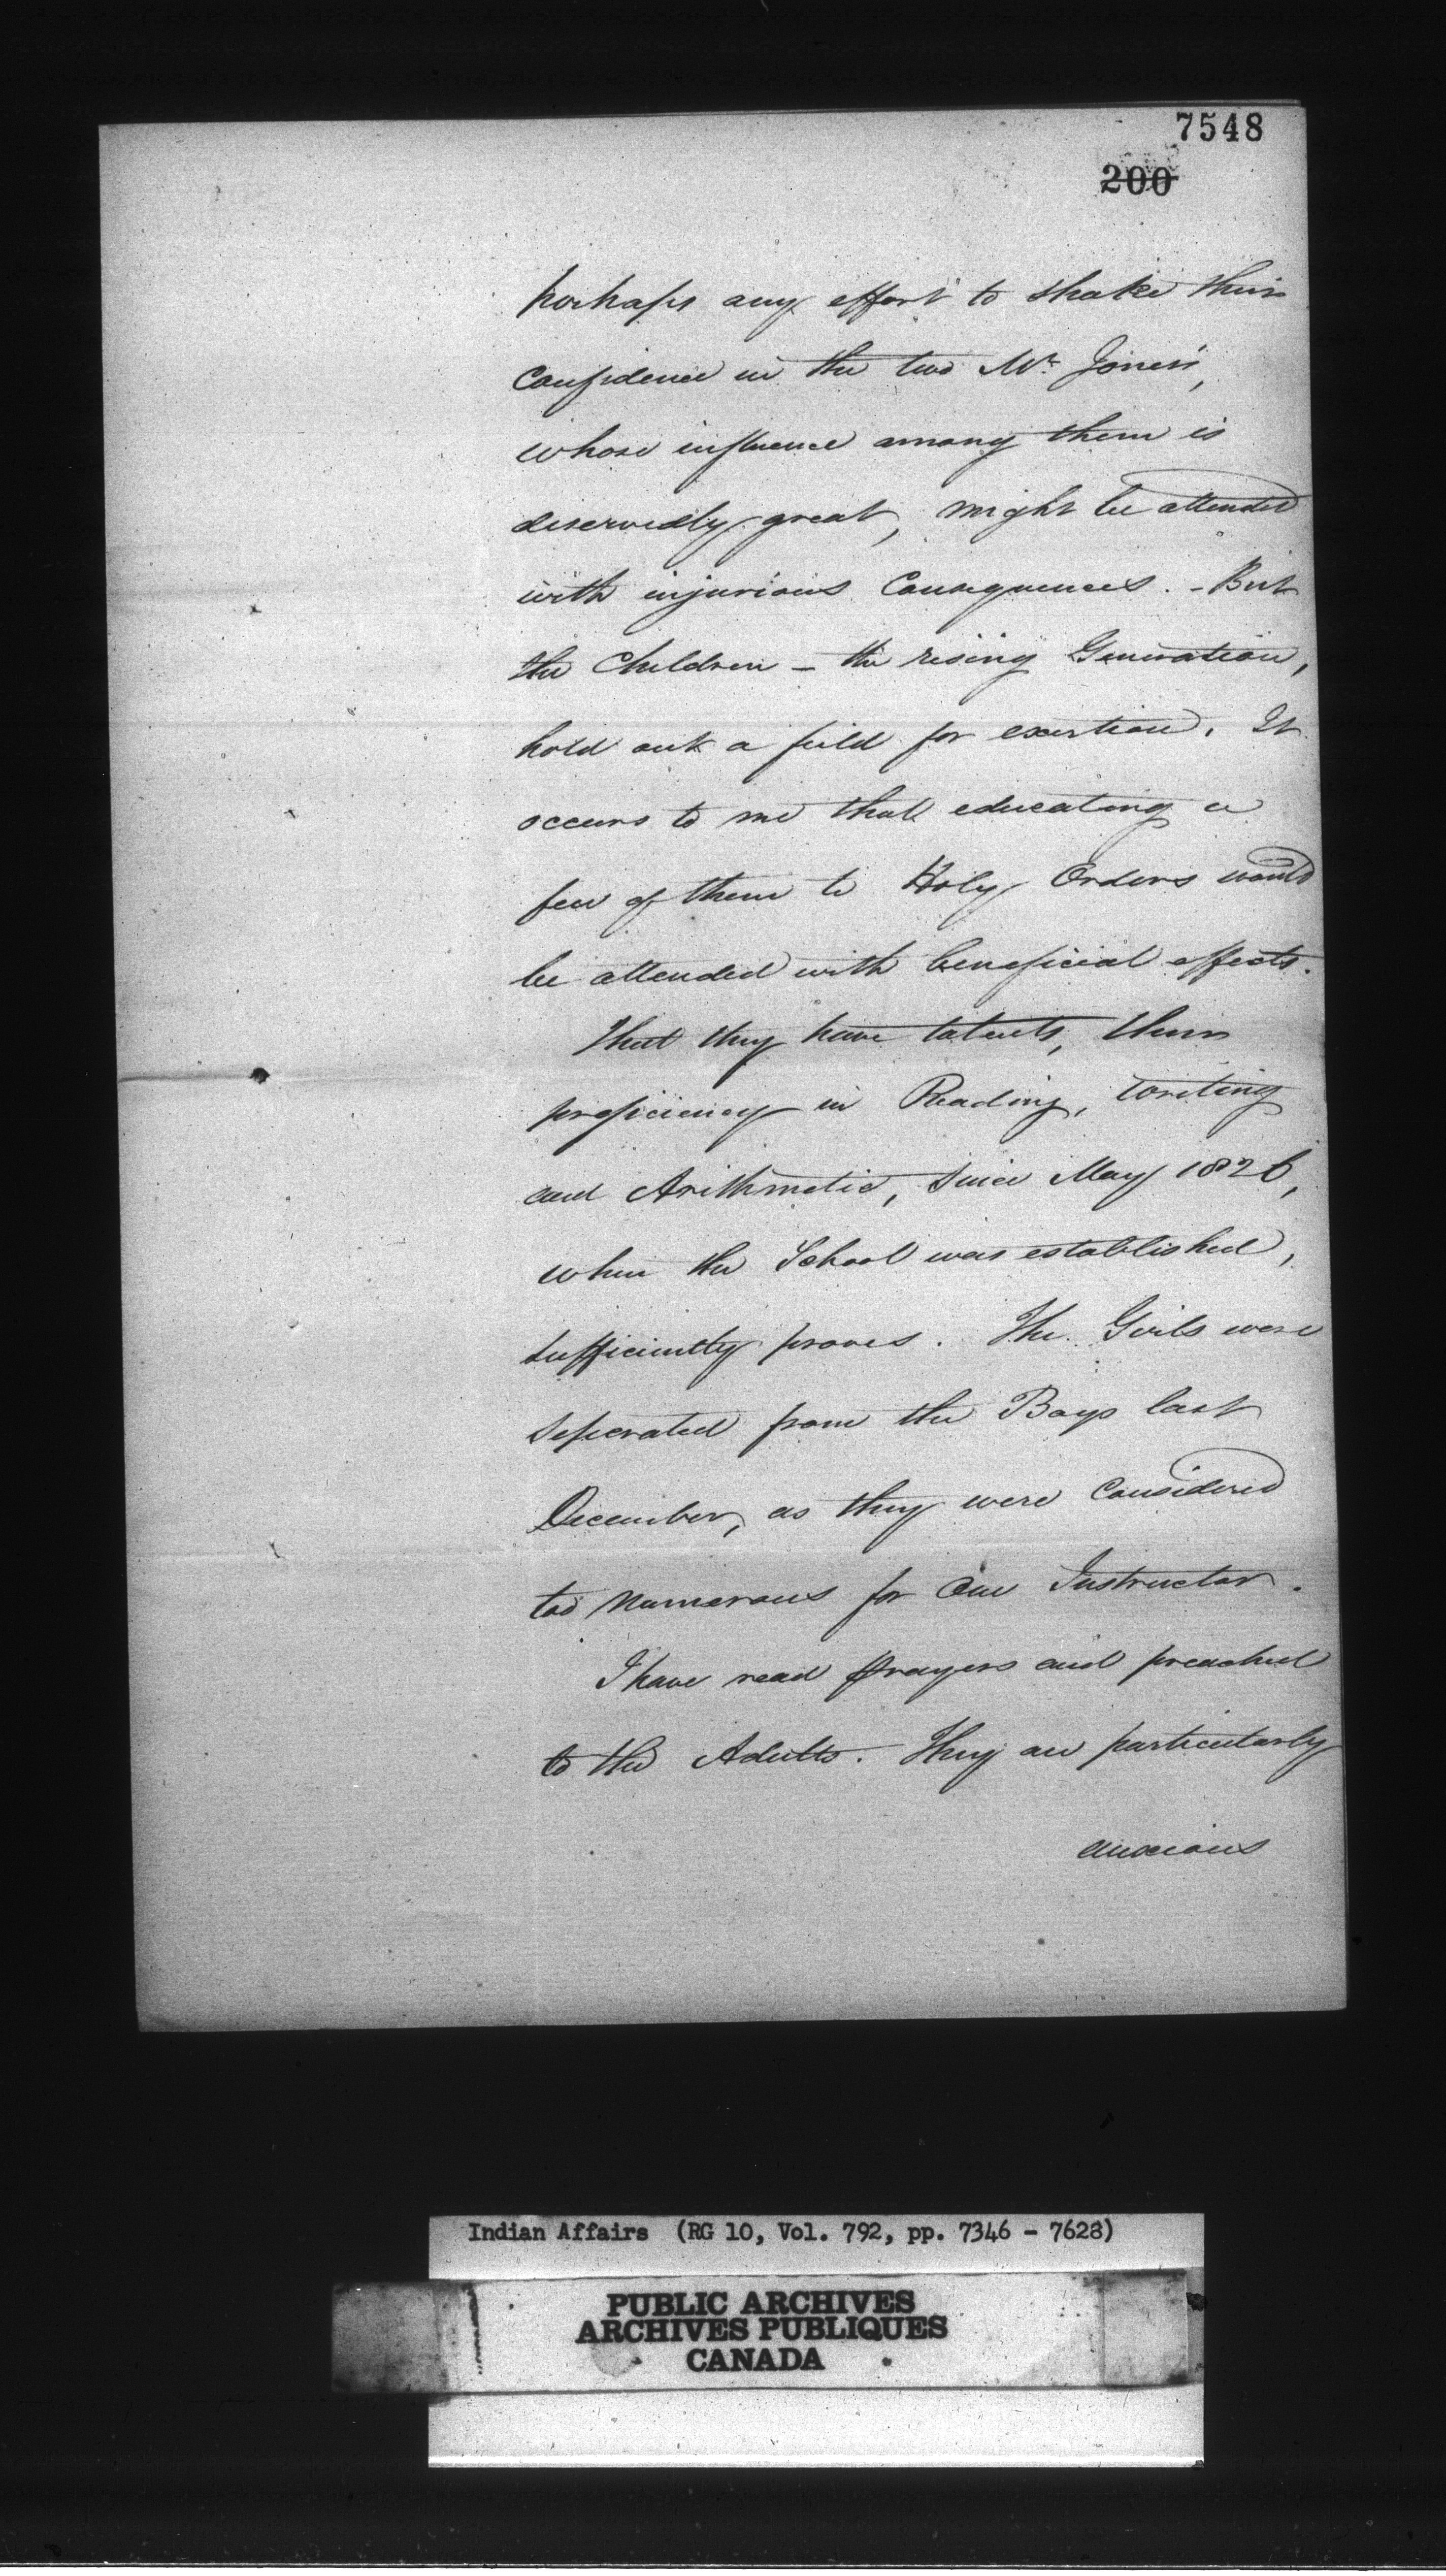 7548
200
perhaps any effort to shake their
confidence in the two Mr. Jones's,
whose influence among them is
deservedly great, might be attended
with injurious Consequences. - But
the Children - the rising Generation,
hold out a field for exertion. It
occurs to me that educating a
few of them to Holy Orders would
be attended with beneficial effects.
That they have talents, their
proficiency in Reading, writing
and Arithmetic, since May 1826,
when the School was established,
sufficiently proves. The Girls were
seperated from the Boys last
December, as they were Considered
too numerous for One Instructor.
I have read prayers and preached
to the Adults. They are particularly
anxious
Indian Affairs (RG 10, Vol. 792, pp. 7346 - 7628)
PUBLIC ARCHIVES
ARCHIVES PUBLIQUES
CANADA